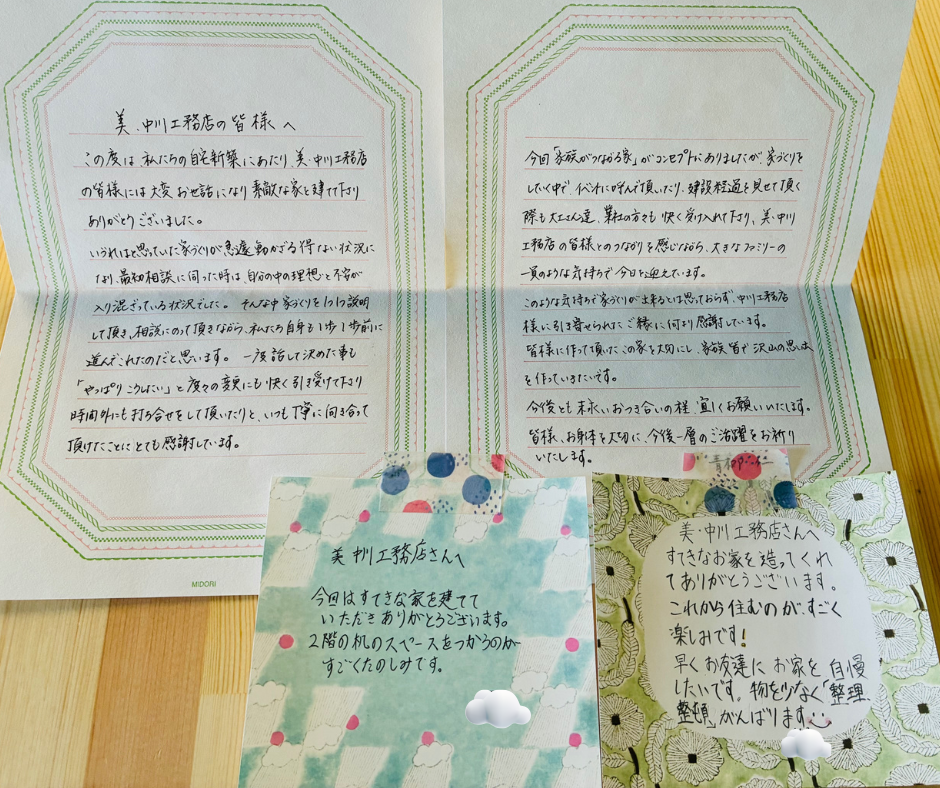 美・中川工務店の皆様へ
この度は、私たちの自宅新築にあたり、美・中川工務店
の皆様には大変お世話になり素敵な家を建てて下さり
ありがとうございました。
いづれはと思っていた家づくりが急遽動かざる得ない状況に
なり、最初相談に伺った時は、自分の中の理想と不安が
入り混ざっている状況でした。そんな中家づくりを1つ1つ説明
して頂き、相談にのって頂きながら、私たち自身も1歩1歩前に
進んでこれたのだと思います。一度話して決めた事も
「やっぱりこうしたい」と度々の変更にも快く引き受けて下さり
時間外にも打ち合せをして頂いたりと、いつも丁寧に向き合って
頂けたことにとても感謝しています。
今回「家族がつながる家」がコンセプトにありましたが、家づくりを
していく中で、イベントに呼んで頂いたり、建設経過を見せて頂く
際も大工さん達、業社の方々も快く受け入れて下さり、美・中川
工務店の皆様とのつながりを感じながら、大きなファミリーの
一員のような気持ちで今日を迎えています。
このような気持ちで家づくりが出来るとは思っておらず、中川工務店
様に引き寄せられたご縁に何より感謝しています。
皆様に作って頂いたこの家を大切にし、家族皆で沢山の思い出
を作っていきたいです。
今後とも末永いおつき合いの程、宜しくお願いいたします。
皆様、お身体を大切に、今後一層のご活躍をお祈り
いたします。
MIDORI
美・中川工務店さんへ
今回はすてきな家を建てて
いただきありがとうございます。
2階の机のスペースをつかうのが
すごくたのしみです。
美・中川工務店さんへ
すてきなお家を造ってくれ
てありがとうございます。
これから住むのが、すごく
楽しみです!
早くお友達にお家を自慢
したいです。物を少なく「整理、
整頓」がんばります